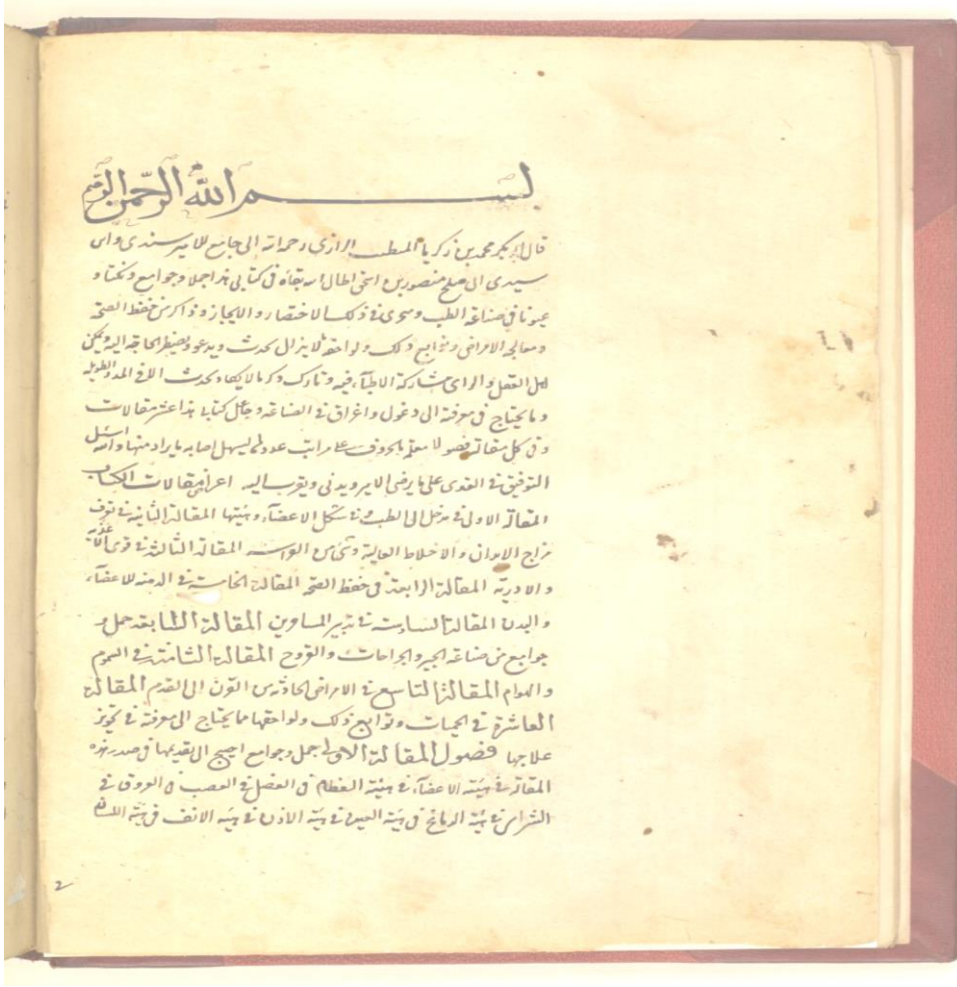 بسم الله الرحمن الرحيم
قال ابو بكر محمد بن زكريا المتطبب الرازي رحمه الله اني جامع للامير
سيدي ابي صالح منصور بن اسحق اطال الله بقاه في كتابي هذا جملا وجوامع ونكتا و
عيونا في صناعة الطب ومتحري في ذلك الاختصار والايجاز وذاكر من حفظ الصحة
ومعالجة الامراض وتوابع ذلك ولواحقه ما لا يزال يحدث ويدعو الحاجة اليه ويمكن
اهل العقل والراي مشاركة الاطباء فيه وتارك ذكر ما لا يكاد يحدث الا في المدد الطويلة
وما يحتاج في معرفته الى دخول واغراق في الصناعة وجاعل كتابي هذا عشر مقالات
وفي كل مقالة فصولا معلمة بالحروف على مراتب عددها ليسهل اصابة ما يراد منها والله اسئل
التوفيق على ما يرضي الامير ويدني ويقرب اليه اغراض مقالات الكتاب
المقالة الاولى في مدخل الى الطب وفي شكل الاعضاء وهيئتها المقالة الثانية في تعرف
مزاج الابدان والاخلاط الغالبة وشئ من الفراسة المقالة الثالثة في قوى الاغذية
والادوية المقالة الرابعة في حفظ الصحة المقالة الخامسة في الزينة للاعضاء
والبدن المقالة السادسة في تدبير المسافرين المقالة السابعة جمل و
جوامع من صناعة الجبر والجراحات والقروح المقالة الثامنة في السموم
والهوام المقالة التاسع في الامراض الحادثة من القرن الى القدم المقالة
العاشرة في الحميات وتوابع ذلك ولواحقها مما يحتاج الى معرفته في
علاجها فصول المقالة الاولى جمل وجوامع احتيج الى تقديمها في صدر هذه
المقالة في هيئة الاعضاء في هيئة العظام في العضل في العصب في العروق في
الشرايين في هيئة الدماغ في هيئة العين في هيئة الاذن في هيئة الانف في هيئة اللسان
2